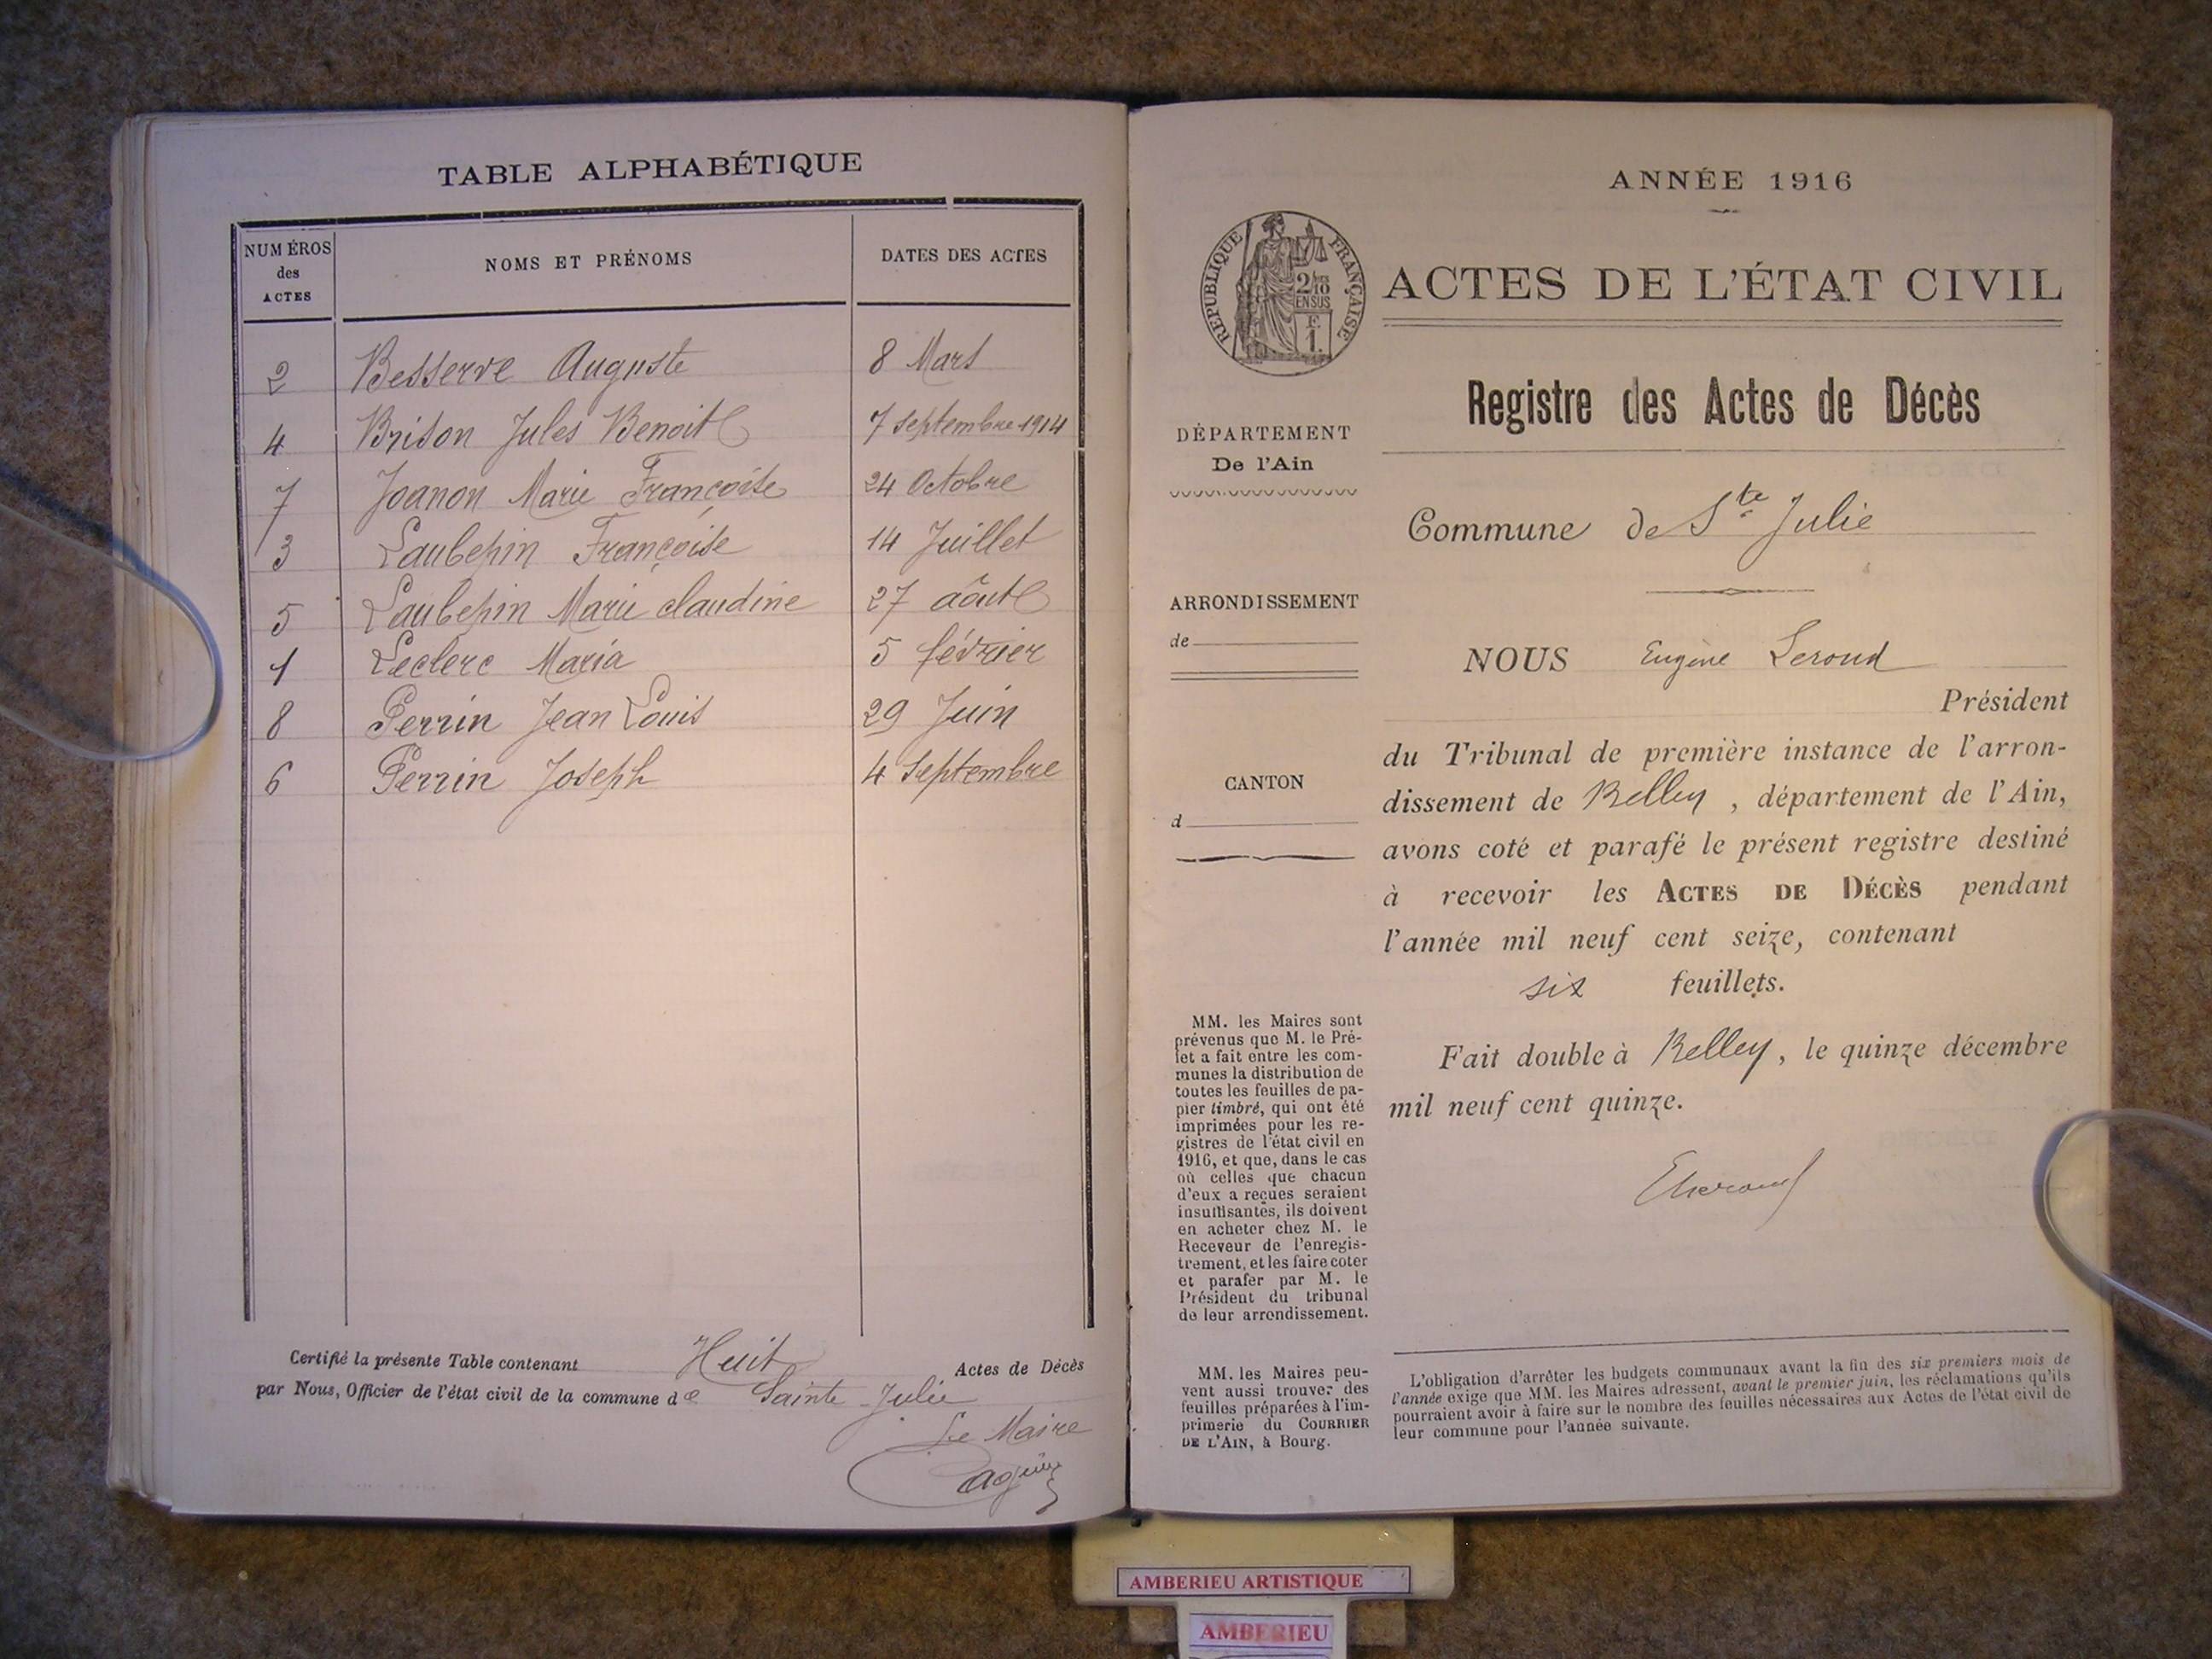 TABLE ALPHABÉTIQUE
NUMÉROS des ACTES
NOMS ET PRÉNOMS
DATES DES ACTES
2 Besserve Auguste 8 Mars
4 Brison Jules Benoit 7 septembre 1914
7 Joanon Marie Françoise 24 Octobre
3 Laubepin Françoise 14 Juillet
5 Laubepin Marie claudine 27 aôut
1 Leclerc Maria 5 février
8 Perrin Jean Louis 29 Juin
6 Perrin Joseph 4 Septembre
Certifié la présente Table contenant Huit Actes de Décès
par Nous, Officier de l'état civil de la commune de Sainte-Julie
Le Maire
ANNÉE 1916
RÉPUBLIQUE FRANÇAISE
EN SUS
ACTES DE L'ÉTAT CIVIL
Registre des Actes de Décès
DÉPARTEMENT
De l'Ain
Commune de Ste Julie
ARRONDISSEMENT
de
NOUS Eugène Leroud
Président
du Tribunal de première instance de l'arron-
dissement de Belley, département de l'Ain,
CANTON
d
avons coté et parafé le présent registre destiné
à recevoir les ACTES DE DÉCÈS pendant
l'année mil neuf cent seize, contenant
six feuillets.
Fait double à Belley, le quinze décembre
mil neuf cent quinze.
MM. les Maires sont
prévenus que M. le Pré-
fet a fait entre les com-
munes la distribution de
toutes les feuilles de pa-
pier timbré, qui ont été
imprimées pour les re-
gistres de l'état civil en
1916, et que, dans le cas
où celles que chacun
d'eux a reçues seraient
insuffisantes, ils doivent
en acheter chez M. le
Receveur de l'enregis-
trement, et les faire coter
et parafer par M. le
Président du tribunal
de leur arrondissement.
MM. les Maires peu-
vent aussi trouver des
feuilles préparées à l'im-
primerie du COURRIER
DE L'AIN, à Bourg.
L'obligation d'arrêter les budgets communaux avant la fin des six premiers mois de
l'année exige que MM. les Maires adressent, avant le premier juin, les réclamations qu'ils
pourraient avoir à faire sur le nombre des feuilles nécessaires aux Actes de l'état civil de
leur commune pour l'année suivante.
AMBERIEU ARTISTIQUE
AMBERIEU